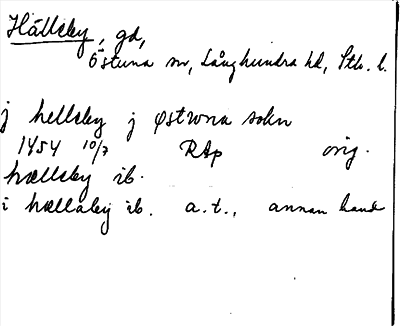 Hällsby, gd,
Östuna sn, Långhundra hd, Sth. l.
j hellsby j østwna sokn
1454 10/7 RAp orig.
hællsby ib.
i hællaby ib. a.t., annan hand